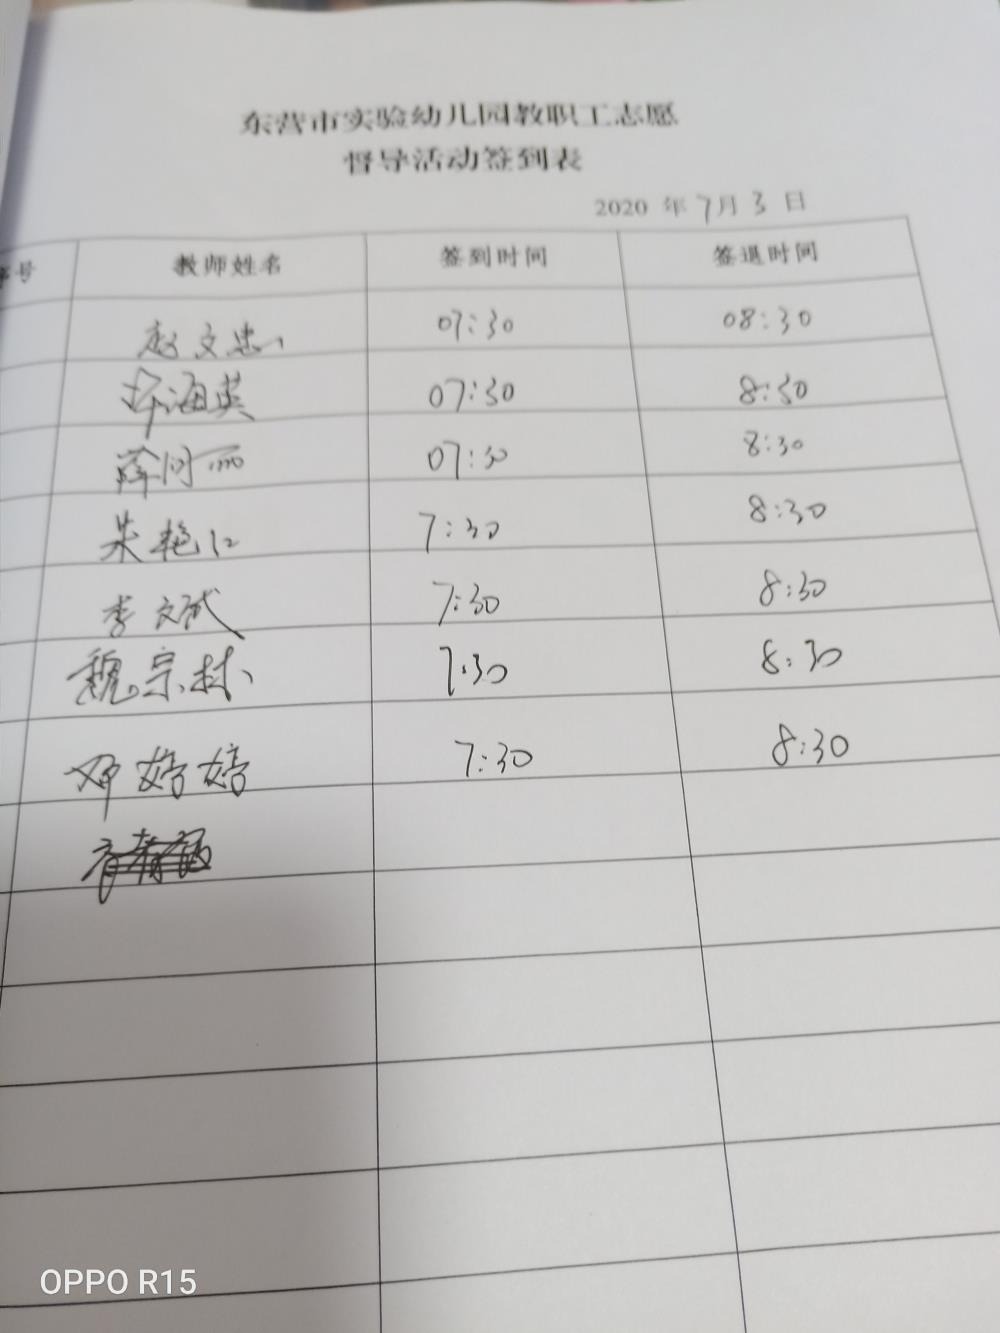 东营市实验幼儿园教职工志愿
督导活动签到表
2020 年 7月 3 日
序号 教师姓名 签到时间 签退时间
赵文忠 07:30 08:30
海英 07:30 8:30
薛同丽 07:30 8:30
朱艳红 7:30 8:30
李文斌 7:30 8:30
魏宗林 7:30 8:30
邓婷婷 7:30 8:30
OPPO R15